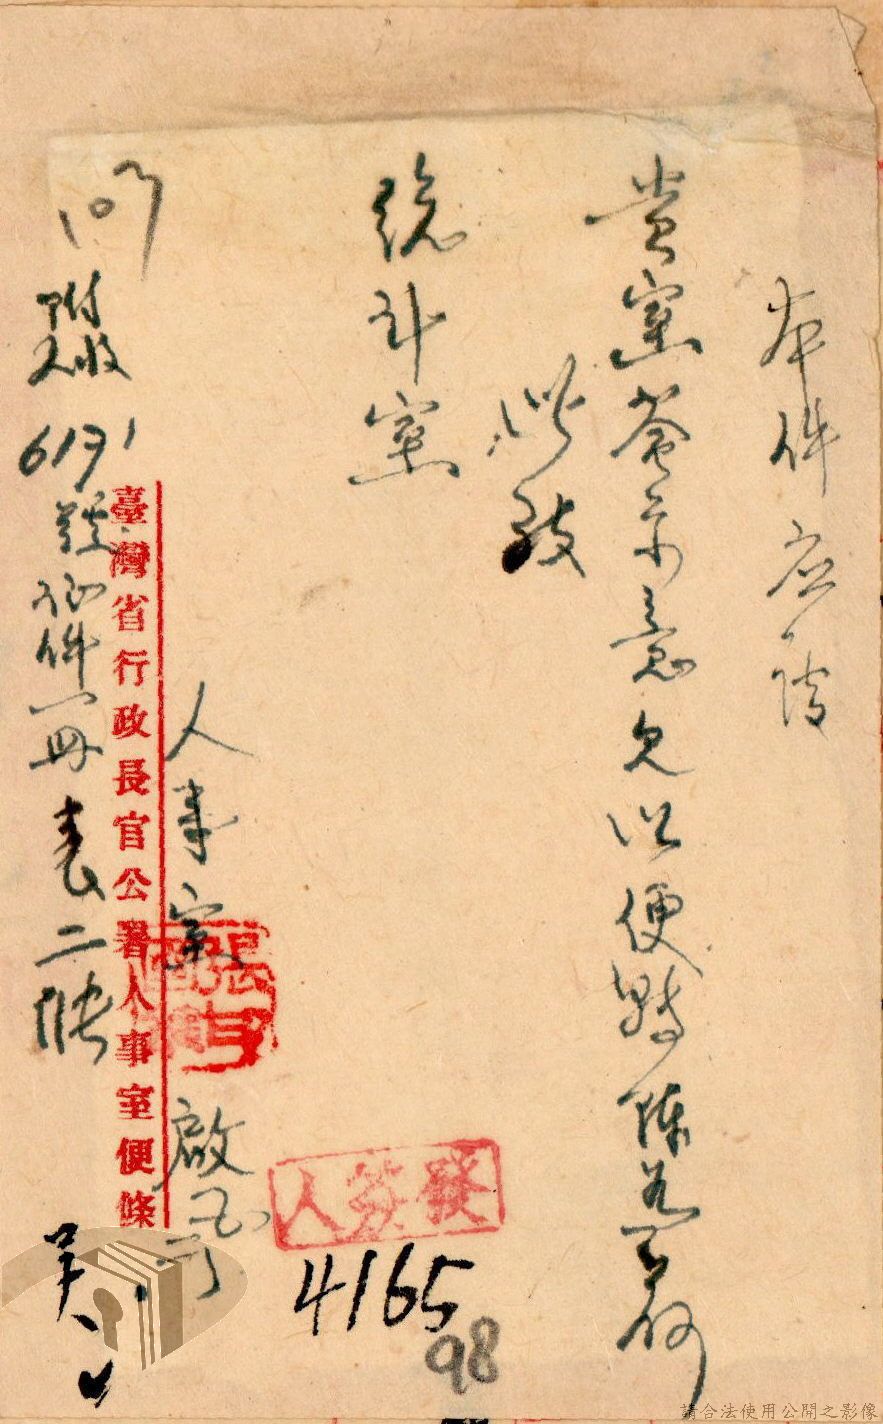 本件应請
貴室簽示意見以便轉陳為荷
此致
統計室
人事室
啟
臺灣省行政長官公署人事室便條
附收
號証件一冊表二張
發簽人
4165
98
請合法使用公開之影像